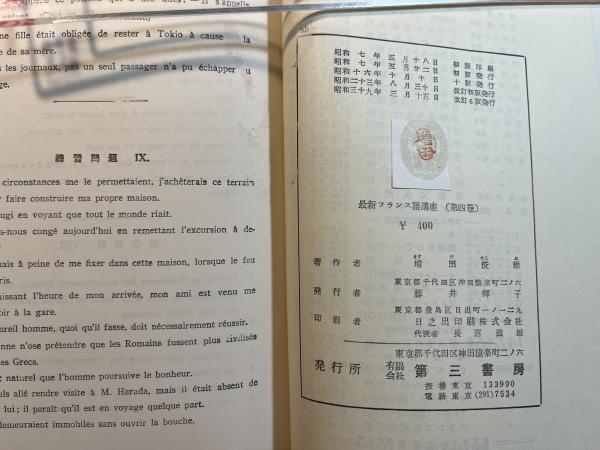 ne fille était obligée de rester à Tokio à cause la
e de sa mère.
s les journaux, pas un seul passager n'a pu échapper u
ge.
練習問題 IX.
circonstances me le permettaient, j'achèterais ce terrain
y faire construire ma propre maison.
ugi en voyant que tout le monde riait.
s-nous congé aujourd'hui en remettant l'excursion à de-
nais à peine de me fixer dans cette maison, lorsque le feu
ris.
issant l'heure de mon arrivée, mon ami est venu me
oir à la gare.
areil homme, quoi qu'il fasse, doit nécessairement réussir.
onne n'ose prétendre que les Romains fussent plus civilisés
s Grecs.
t naturel que l'homme poursuive le bonheur.
uis allé rendre visite à M. Harada, mais il était absent de
lui; il paraît qu'il est en voyage quelque part.
demeuraient immobiles sans ouvrir la bouche.
昭和七年五月十八日 初版印刷
昭和七年五月廿二日 初版発行
昭和十六年十月十日 十版発行
昭和二十三年八月三十日 改訂初版発行
昭和三十九年三月十五日 改訂6版発行
最新フランス語講座 〔第四巻〕
¥ 400
著作者 増田俊雄
東京都千代田区神田猿楽町二ノ六
発行者 藤井輝子
東京都豊島区日出町一ノ二九
印刷者 日之出印刷株式会社
代表者 長沼滋雄
東京都千代田区神田猿楽町二ノ六
発行所 有限会社 第三書房
振替東京 133990
電話東京 (291) 7534